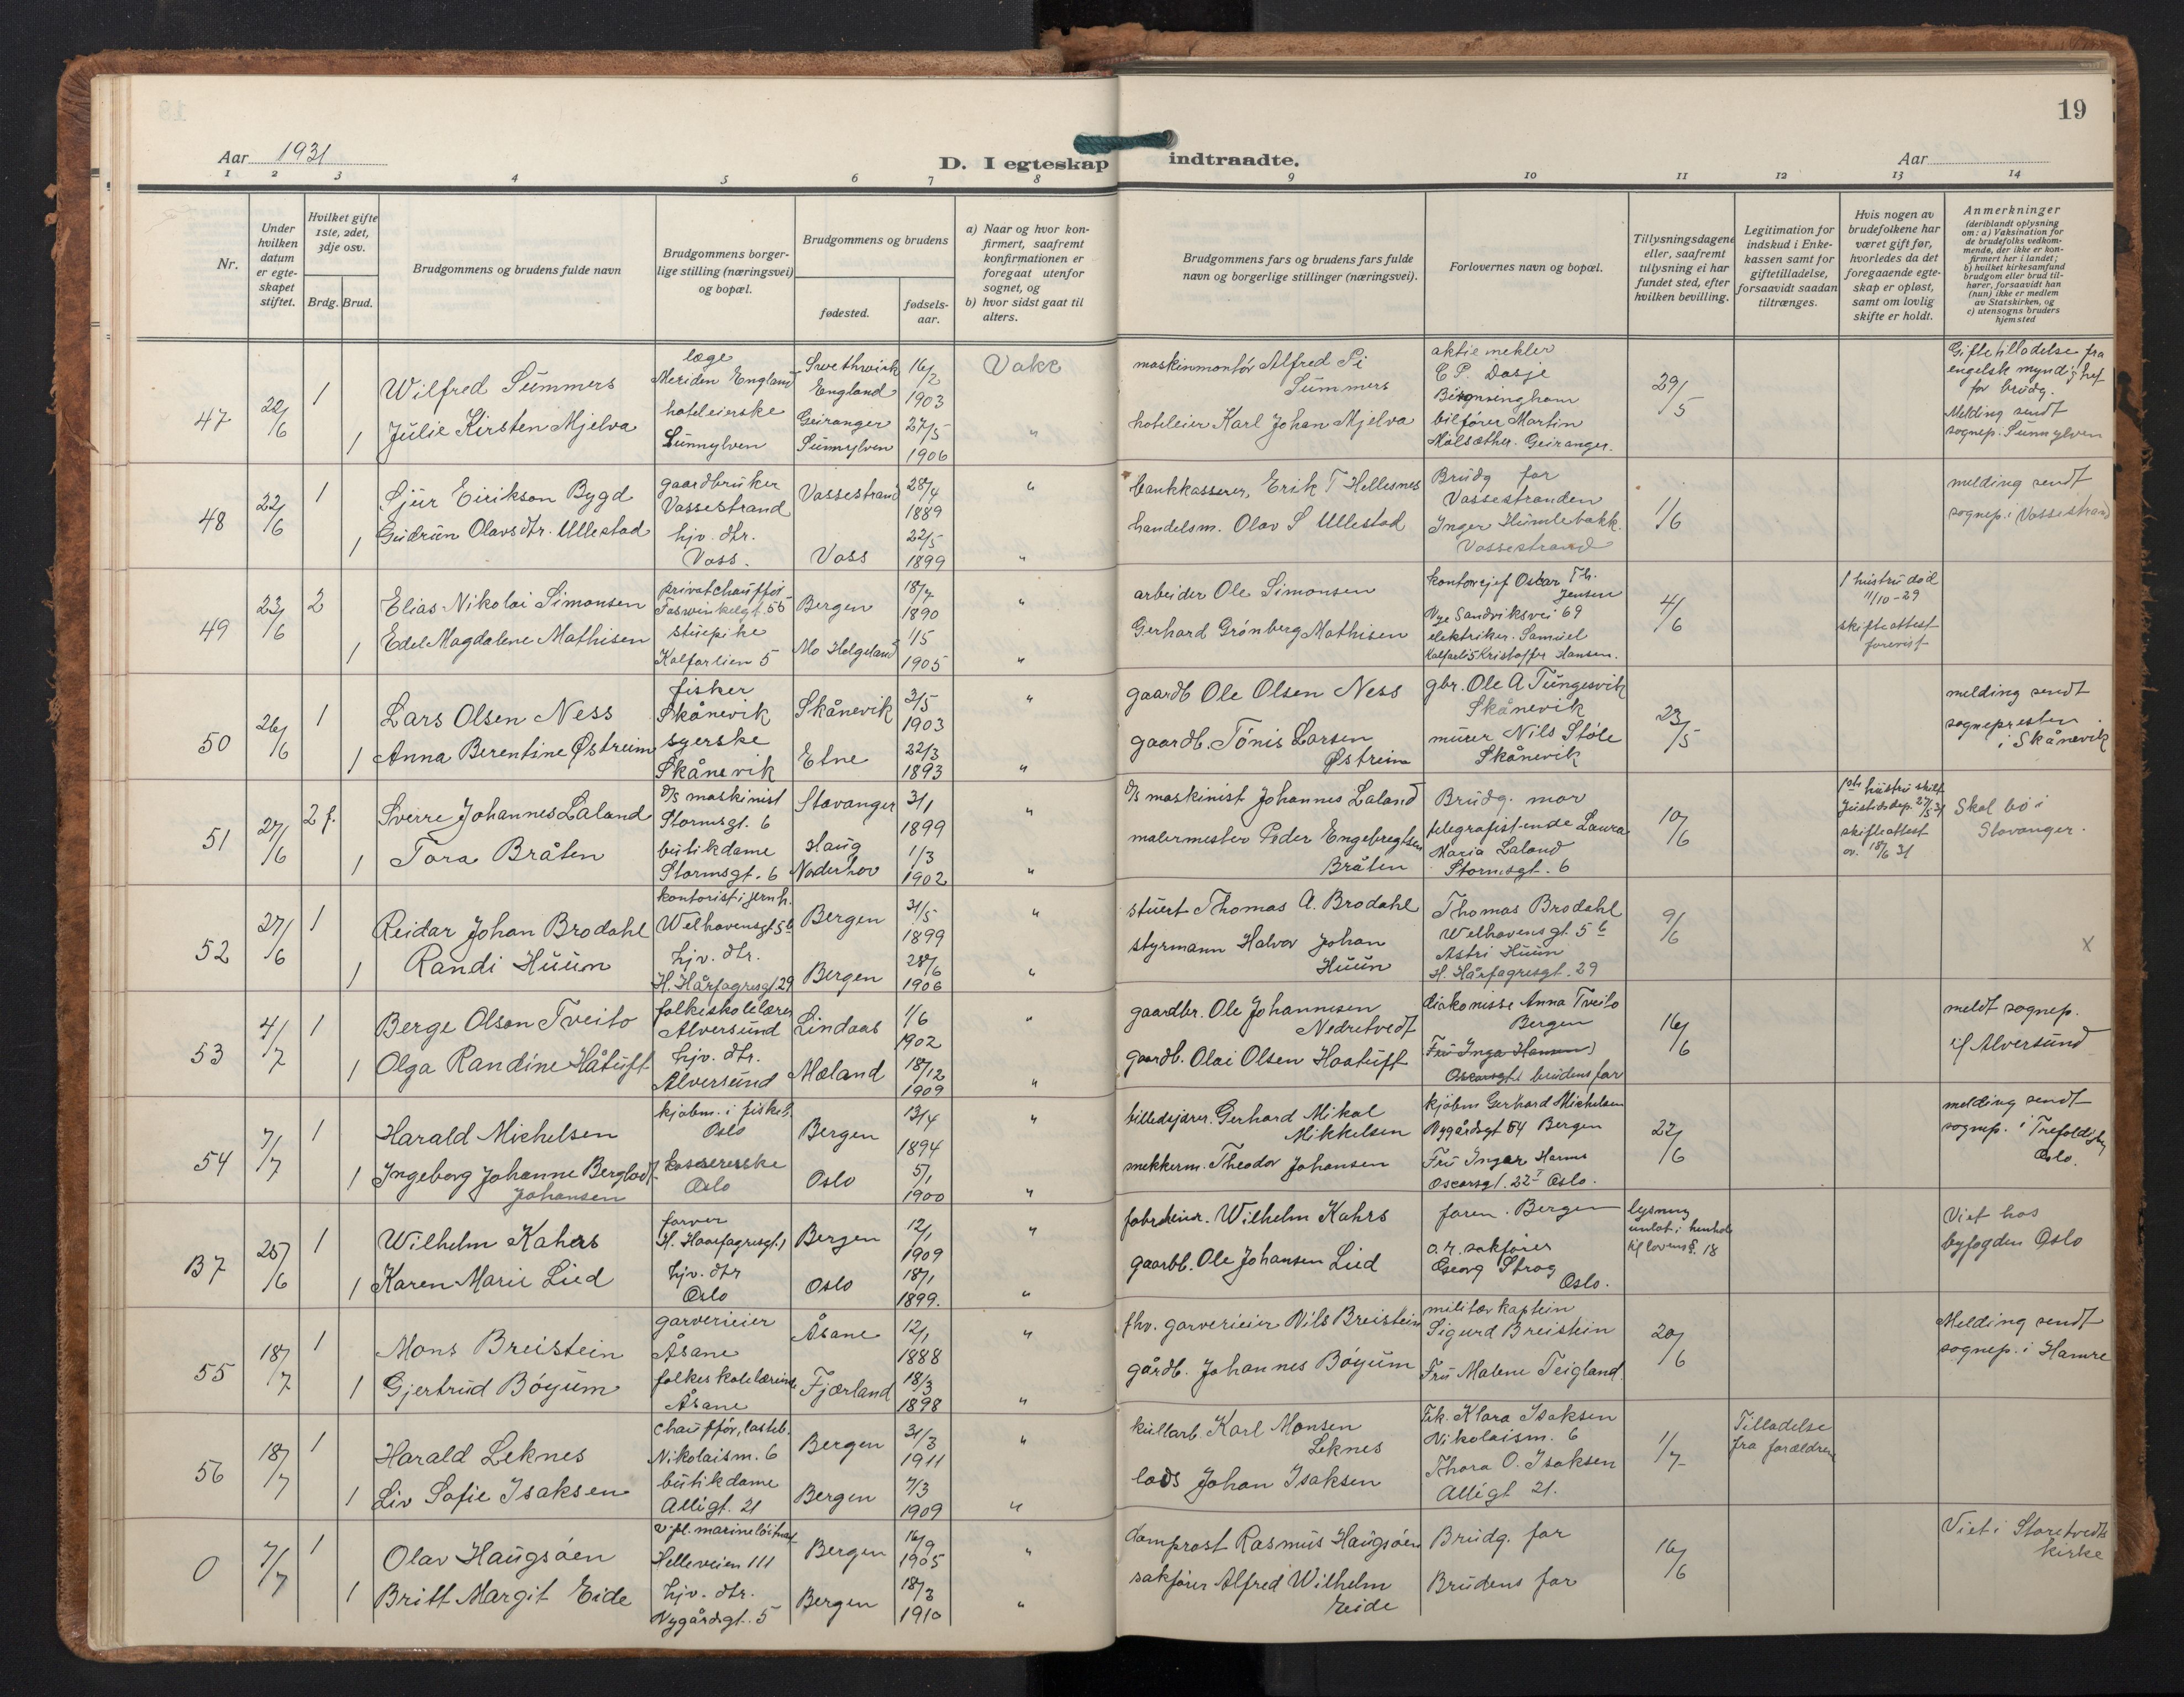 19
Aar 1931
D. I egteskap indtraadte.
Aar
1 2 3 4 5 6 7 8 9 10 11 12 13 14
Nr.
Under hvilken datum er egteskapet stiftet.
Hvilket gifte 1ste, 2det, 3dje osv.
Brdg. Brud.
Brudgommens og brudens fulde navn
Brudgommens borgerlige stilling (næringsvei) og bopæl.
Brudgommens og brudens
fødested.
fødselsaar.
a) Naar og hvor konfirmert, saafremt konfirmationen er foregaat utenfor sognet, og
b) hvor sidst gaat til alters.
Brudgommens fars og brudens fars fulde navn og borgerlige stillinger (næringsvei).
Forlovernes navn og bopæl.
Tillysningsdagene eller, saafremt tilysning ei har fundet sted, efter hvilken bevilling.
Legitimation for indskud i Enkekassen samt for giftetilladelse, forsaavidt saadan tiltrænges.
Hvis nogen av brudefolkene har været gift før, hvorledes da det foregaaende egteskap er opløst, samt om lovlig skifte er holdt.
Anmerkninger (deriblandt oplysning om: a) Vaksination for de brudefolks vedkommende, der ikke er konfirmert her i landet; b) hvilket kirkesamfund brudgom eller brud tilhører, forsaavidt han (hun) ikke er medlem av Statskirken, og c) utensogns bruders hjemsted
47 22/6 1 Wilfred Summers læge Meriden England England 16/2 1903 Vakc maskinmontör Alfred Summers aktiemekler C P. Dosje 29/5 Giftetilladelse fra engelsk myndighet for brudg.
1 Julie Kirsten Mjelva hoteleierske Sunnylven Geiranger Sunnylven 27/5 1906 " hoteleier Karl Johan Mjelva bilfører Martin Geiranger. Melding sendt sognep. Sunnylven
48 22/6 1 Sjur Eirikson Bygd gaardbruker Vassestrand Vassestrand 28/4 1889 " bankkasserer, Erik T Hellesnes Brudg far Vassestranden 1/6 melding sendt sognep. i Vassestrand
1 Gudrun Olavsdtr. Ullestad hjv. dtr. Voss. Voss 22/5 1899 " handelsm. Olav S Ullestad Inger Humlebakk. Vassestrand
49 23/6 2 Elias Nikolai Simonsen privatchauffør Bergen 18/7 1890 " arbeider Ole Simonsen kontorsjef Oscar Th. Jensen Nye Sandviksvei 69 4/6 1 hustru død 11/10-29 skifteattest forevist
1 Edel Magdalene Mathisen stuepike Kalfarlien 5 Mo Helgeland 1/5 1905 " Gerhard Grönberg Mathisen elektriker. Samuel Kristoffer Hansen.
50 26/6 1 Lars Olsen Ness fisker Skånevik Skånevik 3/5 1903 " gaardb Ole Olsen Ness gbr. Ole A Tungesvik Skånevik 23/5 melding sendt sognepresten i Skånevik
1 Anna Berentine Østreim syerske Skånevik Etne 22/3 1893 " gaardb. Tönis Larsen Østreim murer Nils Støle Skånevik
51 27/6 2 f. Sverre Johannes Laland d/s maskinist Stormsgt. 6 Stavanger 3/1 1899 " d/s maskinist Johannes Laland Brudg. mor 10/6 skifteattest av. 18/6 31 Skal bo i Stavanger.
1 Tora Bråten butikdame Stormsgt. 6 Haug Noderhov 1/3 1902 " malermester Peder Engebregtsen Bråten telegrafist-enke Laura Maria Laland Stormsgt. 6
52 27/6 1 Reidar Johan Brodahl kontorist i jernh. Welhavensgt 5b Bergen 31/5 1899 " stuert Thomas A. Brodahl Thomas Brodahl Welhavens gt. 5 b 9/6 x
1 Randi Huun hjv. dtr. H. Hårfagresgt. 29 Bergen 28/6 1906 " styrmann Halvor Johan Huun Astri Huun H. Hårfagresgt. 29
53 4/7 1 Berge Olson Tveito folkeskolelærer Alversund Lindaas 1/6 1902 " gaardbr. Ole Johannesen Nedretvedt diakonisse Anna Tveito Bergen 16/6 meldt sognep. i/ Alversund
1 Olga Randine Håtuft hjv. dtr. Alversund Mæland 18/12 1909 " gaardb. Olai Olsen Haatuft Fru Inga Hansen brudens far
54 7/7 1 Harald Michelsen kjøbm. i fiskeh. Oslo Bergen 13/4 1894 " billedskjærer. Gerhard Mikal Mikkelsen kjöbm Gerhard Michelsen Nygårdsgt 54 Bergen 22/6 melding sendt sognep. i Trefoldigh. Oslo.
1 Ingeborg Johanne Berglodt Johansen kassererske Oslo Oslo 5/1 1900 " Theodor Johansen Fru Ingar Harms Oscarsgt. 22 I Oslo.
B7 25/6 1 Wilhelm Kahrs farver Bergen 12/1 1909 " Wilhelm Kahrs faren. Bergen lysning unlat i henhold til lovens §. 18 Viet hos byfogden Oslo
1 Karen Marie Lied hjv. dtr Oslo Oslo 18/1 1899. " gaardb. Ole Johansen Lied o.r. sakfører Georg Oslo.
55 18/7 1 Mons Breistein garverieier Åsane Åsane 12/1 1888 " fhv. garverieier Nils Breistein militær kaptein Sigurd Breistein 20/6 Melding sendt sognep. i Hamre
1 Gjertrud Böyum folkeskolelærerinde Åsane Fjærland 18/3 1898 " gårdb. Johannes Böyum Fru Malene Teigland.
56 18/7 1 Harald Leknes chaufför, lasteb. Nikolaism. 6 Bergen 31/3 1911 " kullarb. Karl Monsen Leknes Frk. Klara Isaksen Nikolaism. 6 1/7 Tilladelse fra forældrene
1 Liv Sofie Isaksen butikdame Alligt. 21 Bergen 7/3 1909 " lods Johan Isaksen Thora O. Isaksen Alligt 21.
0 7/7 1 Olav Haugsöen v.pl. marinelöitnant Helleveien 111 Bergen 16/9 1905 " domprost Rasmus Haugsöen Brudg. far 16/6 Viet i Storetvedts kirke
1 Britt Margit Eide hjv. dtr. Nygårdsgt. 5 Bergen 18/3 1910 " sakfører Alfred Wilhelm Eide Brudens far